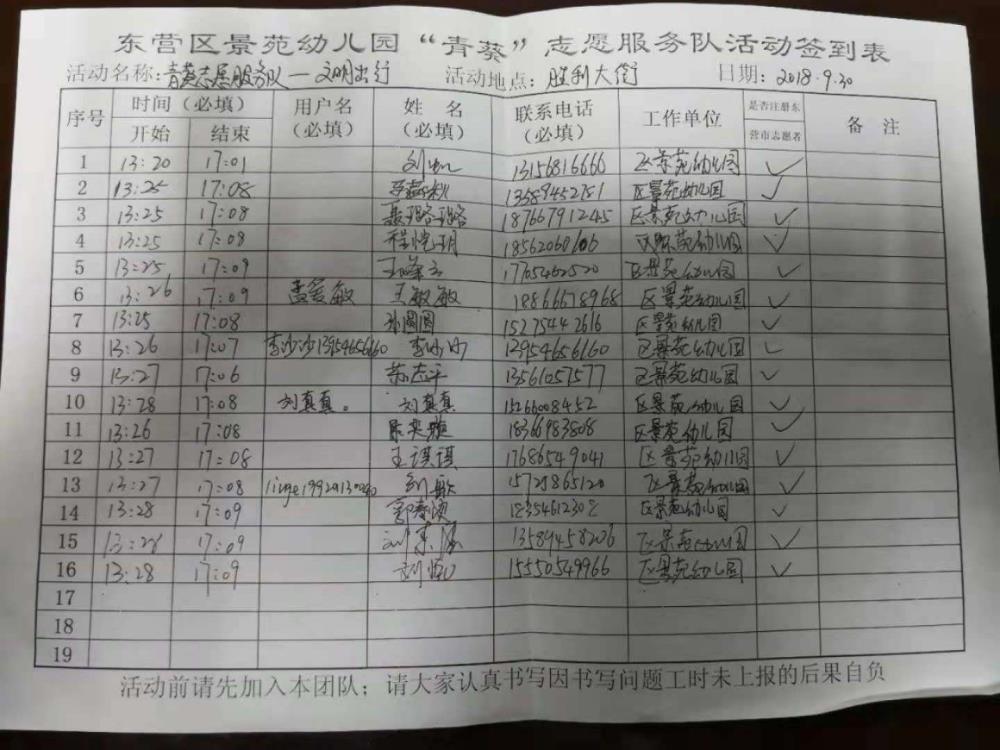 东营区景苑幼儿园“青葵”志愿服务队活动签到表
活动名称：青葵志愿服务队—文明出行 活动地点：胜利大街 日期：2018.9.30
序号 时间（必填） 用户名（必填） 姓名（必填） 联系电话（必填） 工作单位 是否注册东营市志愿者 备注
开始 结束
1 13:20 17:01 13156816666 区景苑幼儿园 ✓
2 13:25 17:08 区景苑幼儿园 ✓
3 13:25 17:08 聂璐璐 18766791245 区景苑幼儿园 ✓
4 13:25 17:09 程恺玥 18562060606 区景苑幼儿园 ✓
5 13:25 17:09 区景苑幼儿园 ✓
6 13:26 17:09 孟爱敏 王敏敏 18866678968 区景苑幼儿园 ✓
7 13:25 17:08 孙圆圆 15275442616 区景苑幼儿园 ✓
8 13:26 17:07 李沙沙13954656160 李沙沙 13954656160 区景苑幼儿园 ✓
9 13:27 17:06 13561057577 区景苑幼儿园 ✓
10 13:28 17:08 刘真真。 刘真真 15266008452 区景苑幼儿园 ✓
11 13:26 17:08 18366983808 区景苑幼儿园 ✓
12 13:27 17:08 王琪琪 17686549041 区景苑幼儿园 ✓
13 13:27 17:08 刘敏 15725865120 区景苑幼儿园 ✓
14 13:28 17:09 区景苑幼儿园 ✓
15 13:28 17:09 13589458206 区景苑幼儿园 ✓
16 13:28 17:09 15550549966 区景苑幼儿园 ✓
17
18
19
活动前请先加入本团队；请大家认真书写因书写问题工时未上报的后果自负